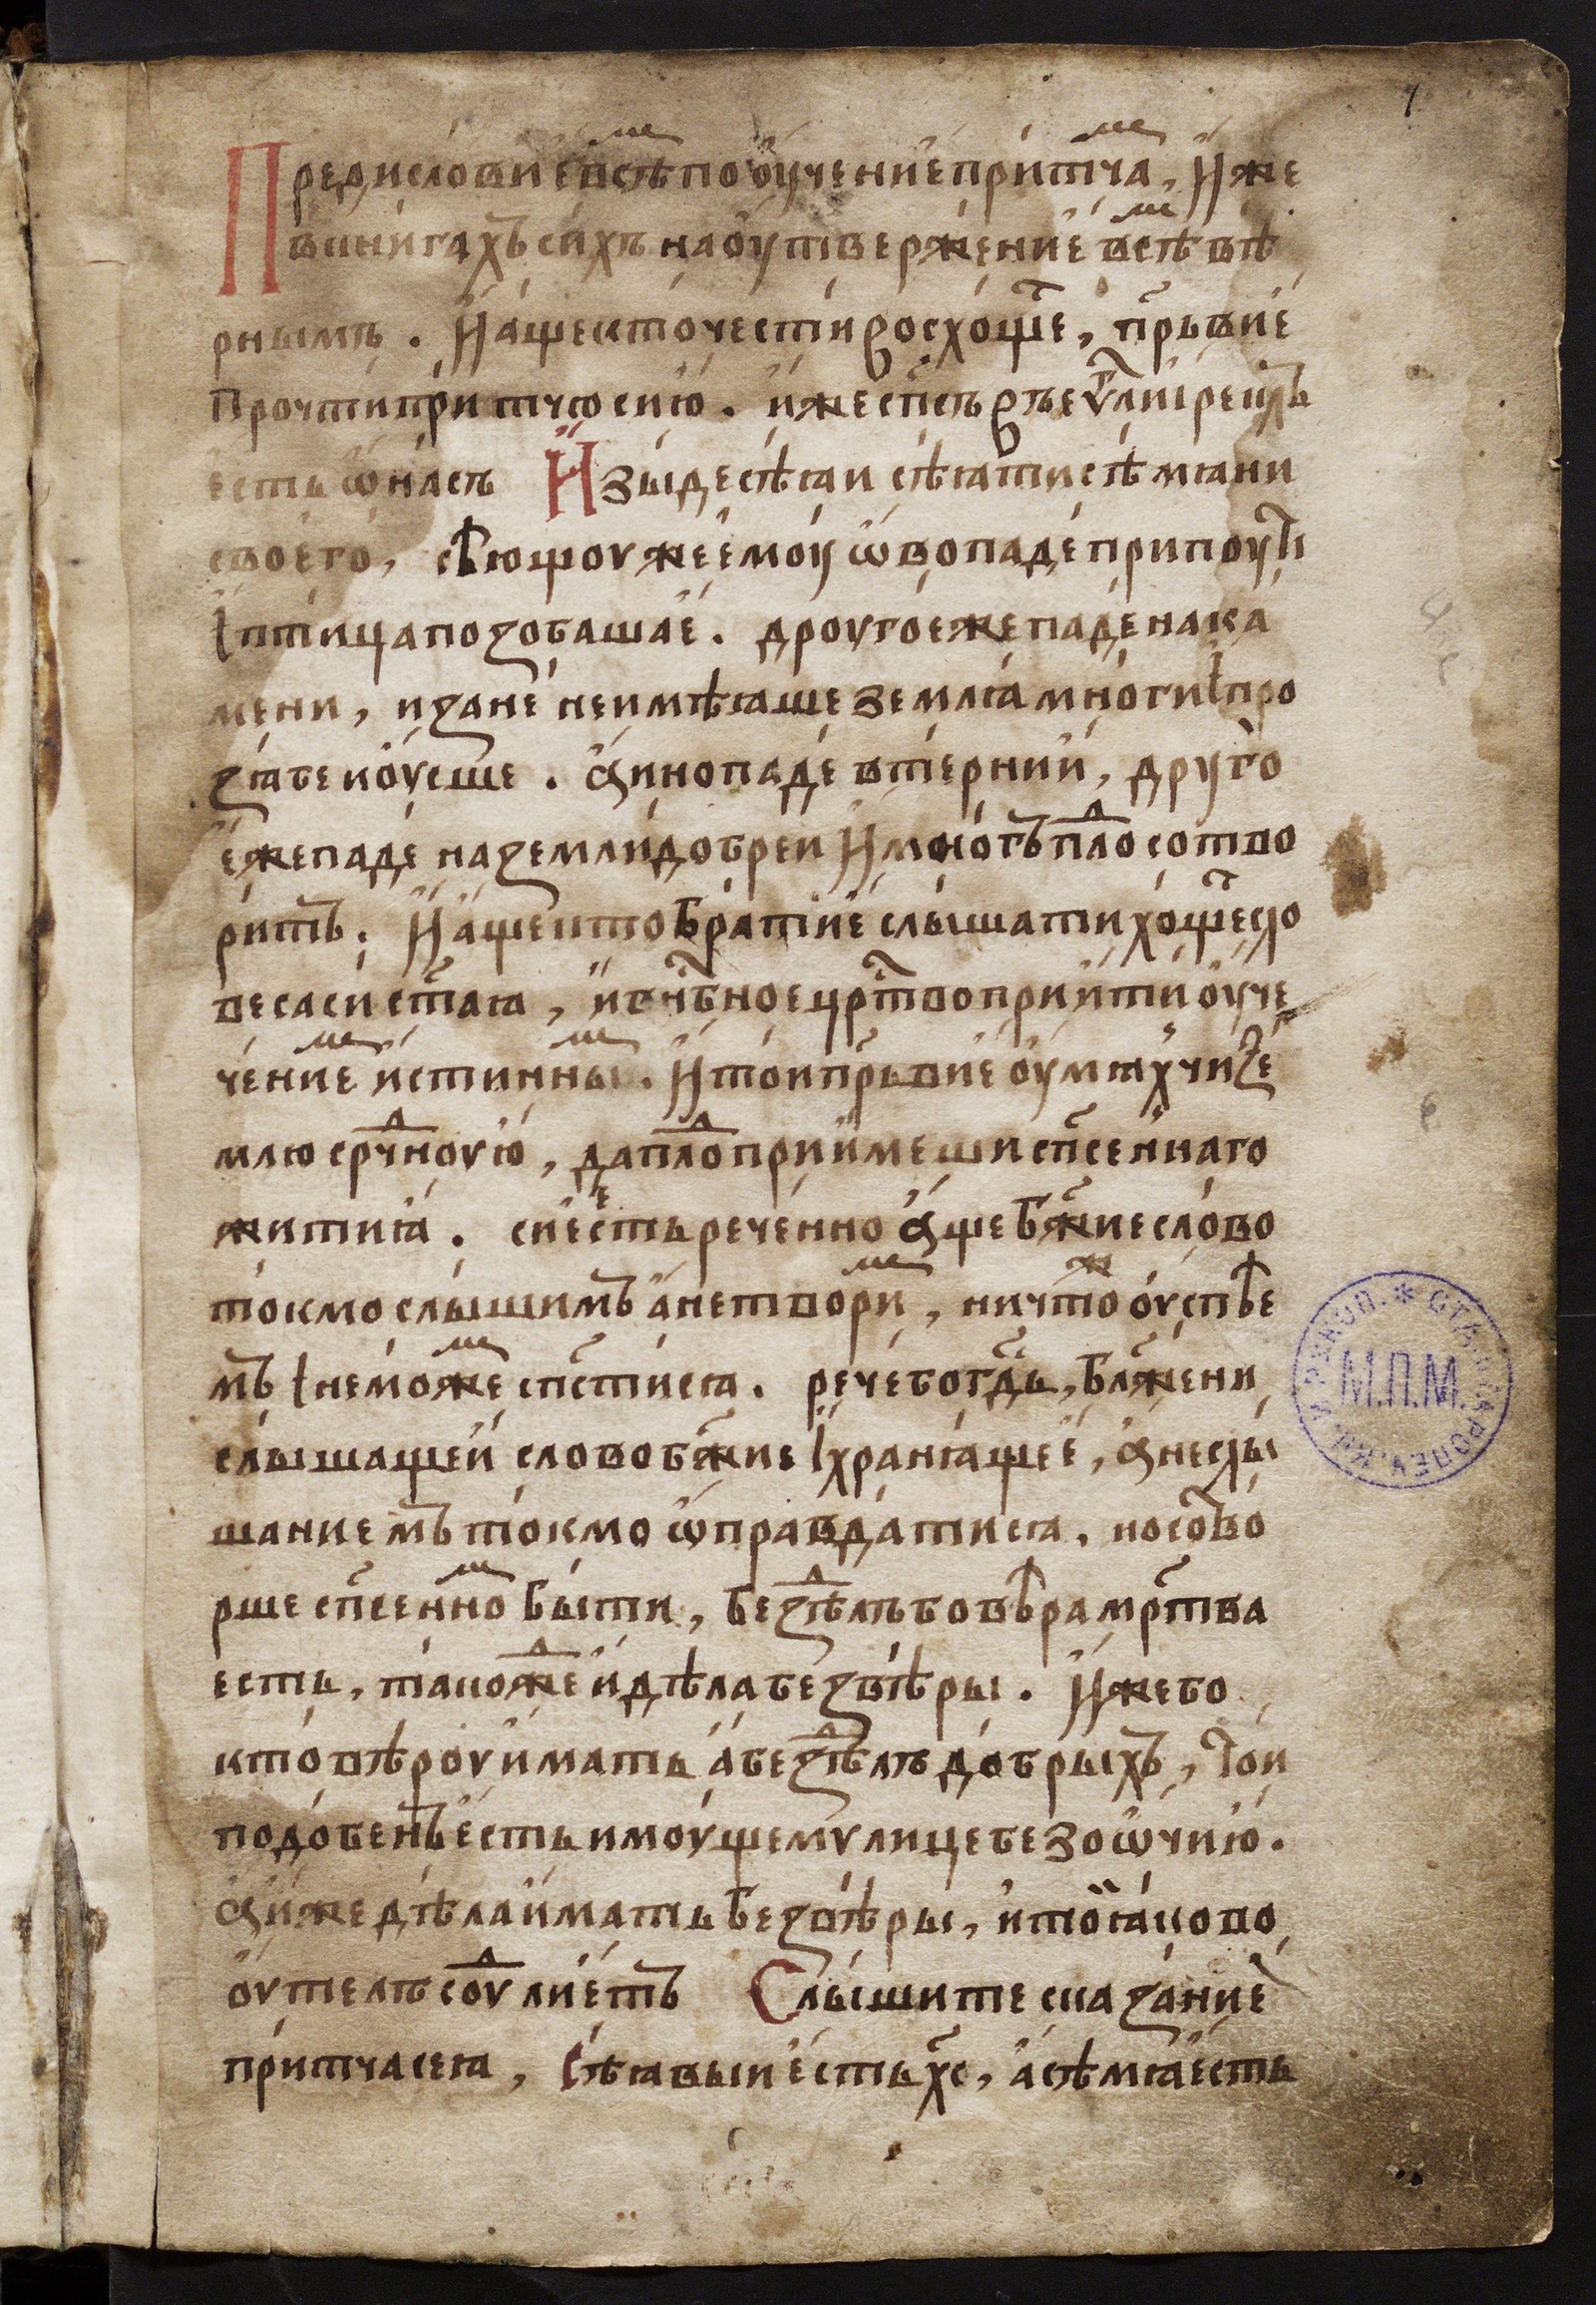 Предисловие всѣⷨ поѹчение притⷨча, Иже
вкнигахъ сихъ наѹтвержение всѣⷨ вѣ
рнымъ. Иаще кто чести восхощеⷮ, прьвие
Прочти притчю сию. иже спⷭ҇ъ въеѵⷢ҇лии реклъ
есть ѡнасъ Изыде сѣꙗи сѣꙗти сѣмꙗни
своего, сѣющоу же емоу ѡво паде припоути
Iптица позобаша е. дроугое же паде нака
мени, изане неимѣꙗше землꙗ многи iпро
зꙗбе иоусше. аино паде втернии, друго
еже паде наземли добреи Имногъ плоⷣ сотво
ритъ. Иаще кто братие слышати хощеⷮ сло
веса си ст҃аꙗ, ивѣчное црⷭ҇тво приити оуче
чениеⷨ истинныⷨ. Итои прьвие оумꙗхчи зе
млю срⷣчноую, да плоⷣ приимеши спⷭ҇еннаго
житиꙗ. сие есть реченно аще бж҃ие слово
токмо слышимъ а нетвориⷨ, ничтоⷤ оуспѣе
мъ Iнеможеⷨ спⷭ҇тисꙗ. рече бо гдⷭ҇ь, блж҃ени
слышащеи слово бж҃ие Iхранꙗщее, анеслы
шаниемъ токмо ѡправдатисꙗ. но сотво
рше спⷭ҇енноⷨ быти, безⷣѣлъ бо вѣра мрⷮтва
есть, такожеⷣ идѣла безвѣры. Иже бо
кто вѣроу имать абезⷣѣлъ добрыхъ, Тои
подобенъ есть имоущемѹ лице безоѡчию.
аиже дѣла имать безвѣры, итои ꙗково
оутелъ соуⷣлиетъ Слышите сказание
притча сеꙗ, Сѣꙗвыи есть хс҃, асѣмꙗ есть
М.П.М.